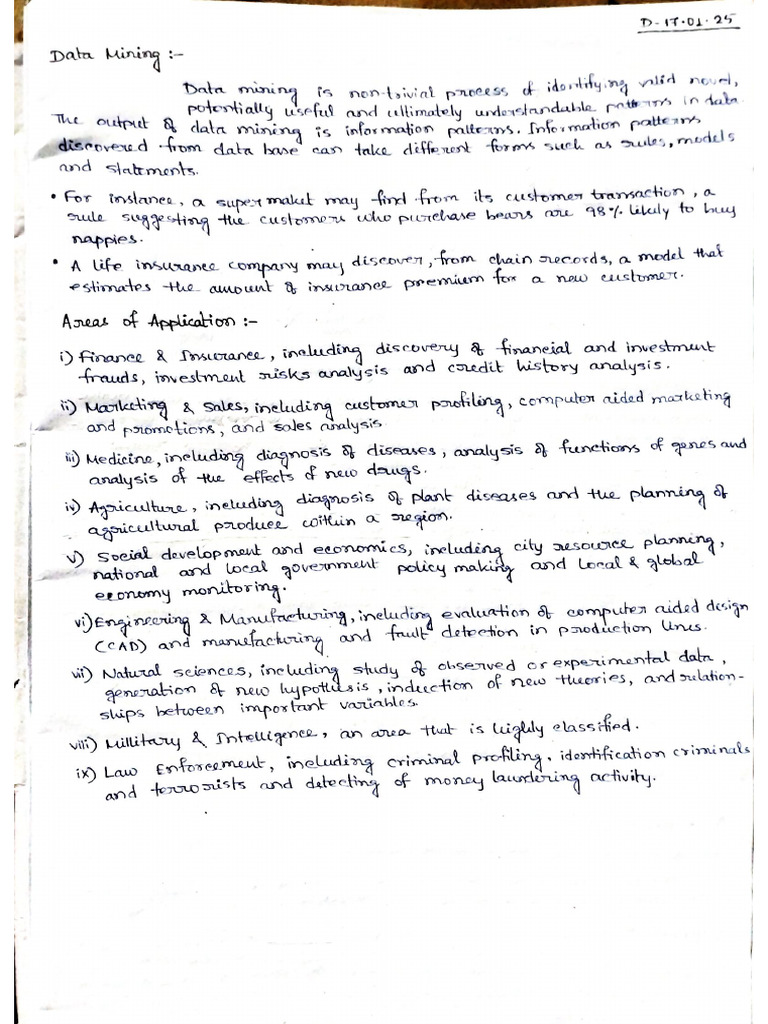 D-17.01.25
Data Mining :-
Data mining is non-trivial process of identifying valid novel,
potentially useful and ultimately understandable patterns in data.
The output of data mining is information patterns. Information patterns
discovered from data base can take different forms such as rules, models
and statements.
• For instance, a super maket may find from its customer transaction, a
rule suggesting the customers who purchase bears are 98% likely to buy
nappies.
• A life insurance company may discover, from chain records, a model that
estimates the amount of insurance premium for a new customer.
Areas of Application :-
i) Finance & Insurance, including discovery of financial and investment
frauds, investment risks analysis and credit history analysis.
ii) Marketing & Sales, including customer profiling, computer aided marketing
and promotions, and sales analysis.
iii) Medicine, including diagnosis of diseases, analysis of functions of genes and
analysis of the effects of new drugs.
iv) Agriculture, including diagnosis of plant diseases and the planning of
agricultural produce within a region.
v) Social development and economics, including city resource planning,
national and local government policy making and local & global
economy monitoring.
vi) Engineering & Manufacturing, including evaluation of computer aided design
(CAD) and manufacturing and fault detection in production lines.
vii) Natural sciences, including study of observed or experimental data,
generation of new hypothisis, induction of new theories, and relation-
ships between important variables.
viii) Millitary & Intelligence, an area that is highly classified.
ix) Law Enforcement, including criminal profiling, identification criminals
and terrorists and detecting of money laundering activity.